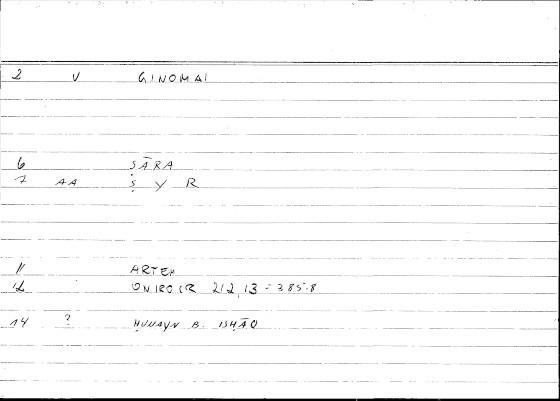 2 V GINOMAI
6 ṢĀRA
7 AA Ṣ Y R
11 ARTEM
12 ONIROCR 212,13 = 385.8
14 ? ḤUNAYN B. ISḤĀQ